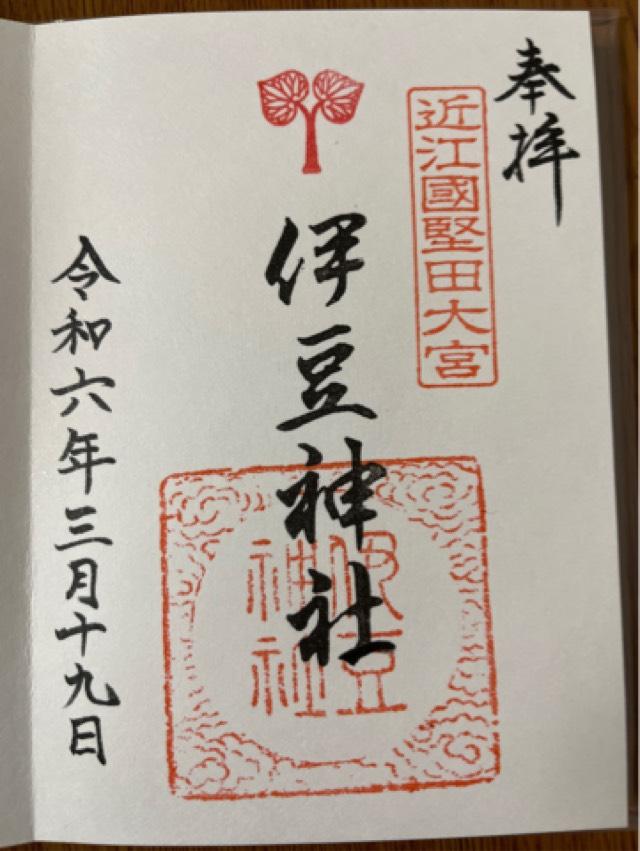 奉拝
近江國堅田大宮
伊豆神社
伊豆
神社
令和六年三月十九日